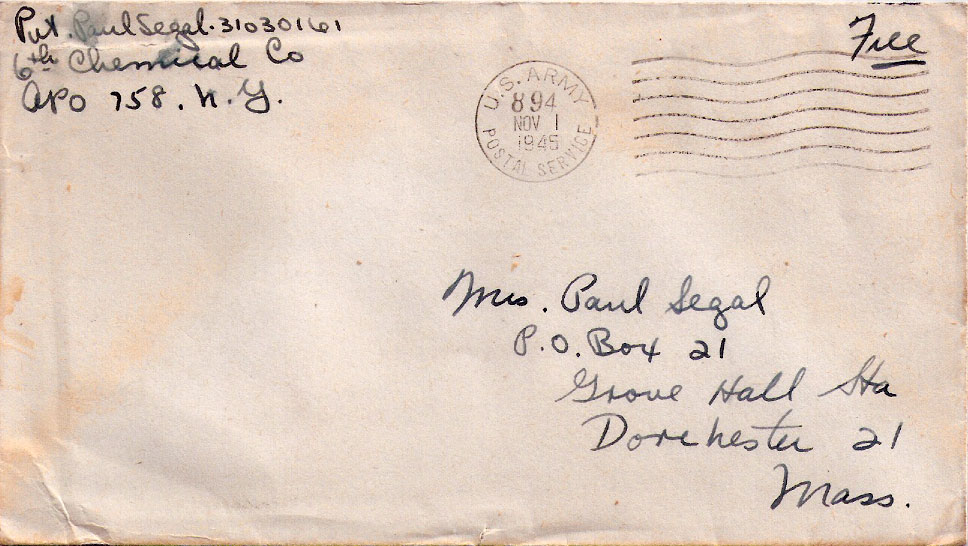 Pvt. Paul Segal. 31030161
6th Chemical Co
APO 758. N.Y.
Free
U.S. ARMY
894
NOV 1
1945
POSTAL SERVICE
Mrs. Paul Segal
P.O. Box 21
Grove Hall Sta
Dorchester 21
Mass.